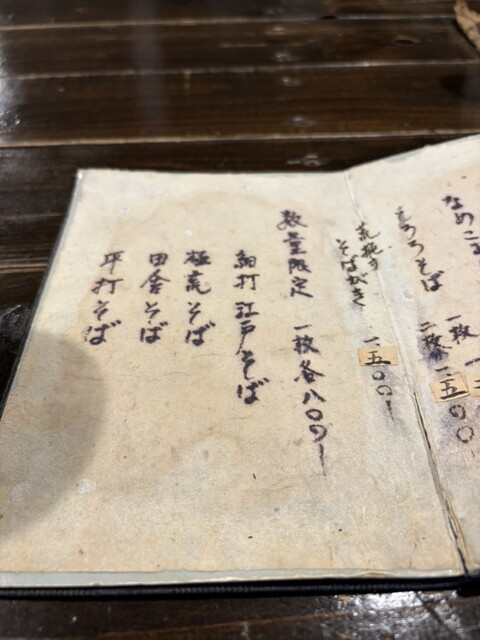 なめこ
一枚 一
とろろそば
二枚 一、五〇〇
荒挽き
そばがき 一、五〇〇ー
数量限定 一枚各八〇〇ー
細打 江戸そば
極荒そば
田舎そば
平打そば